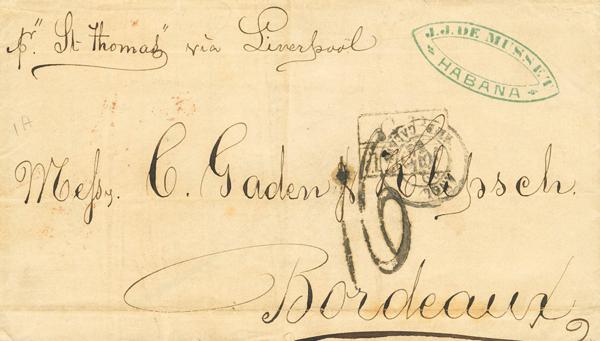 pr "St Thomas" via Liverpool
J. J. DE MUSSET
HABANA
1A
Messrs. C. Gaden & Klipsch.
16
Bordeaux